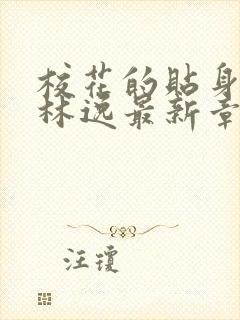 校花的貼身
林逸最新章
汪瓊